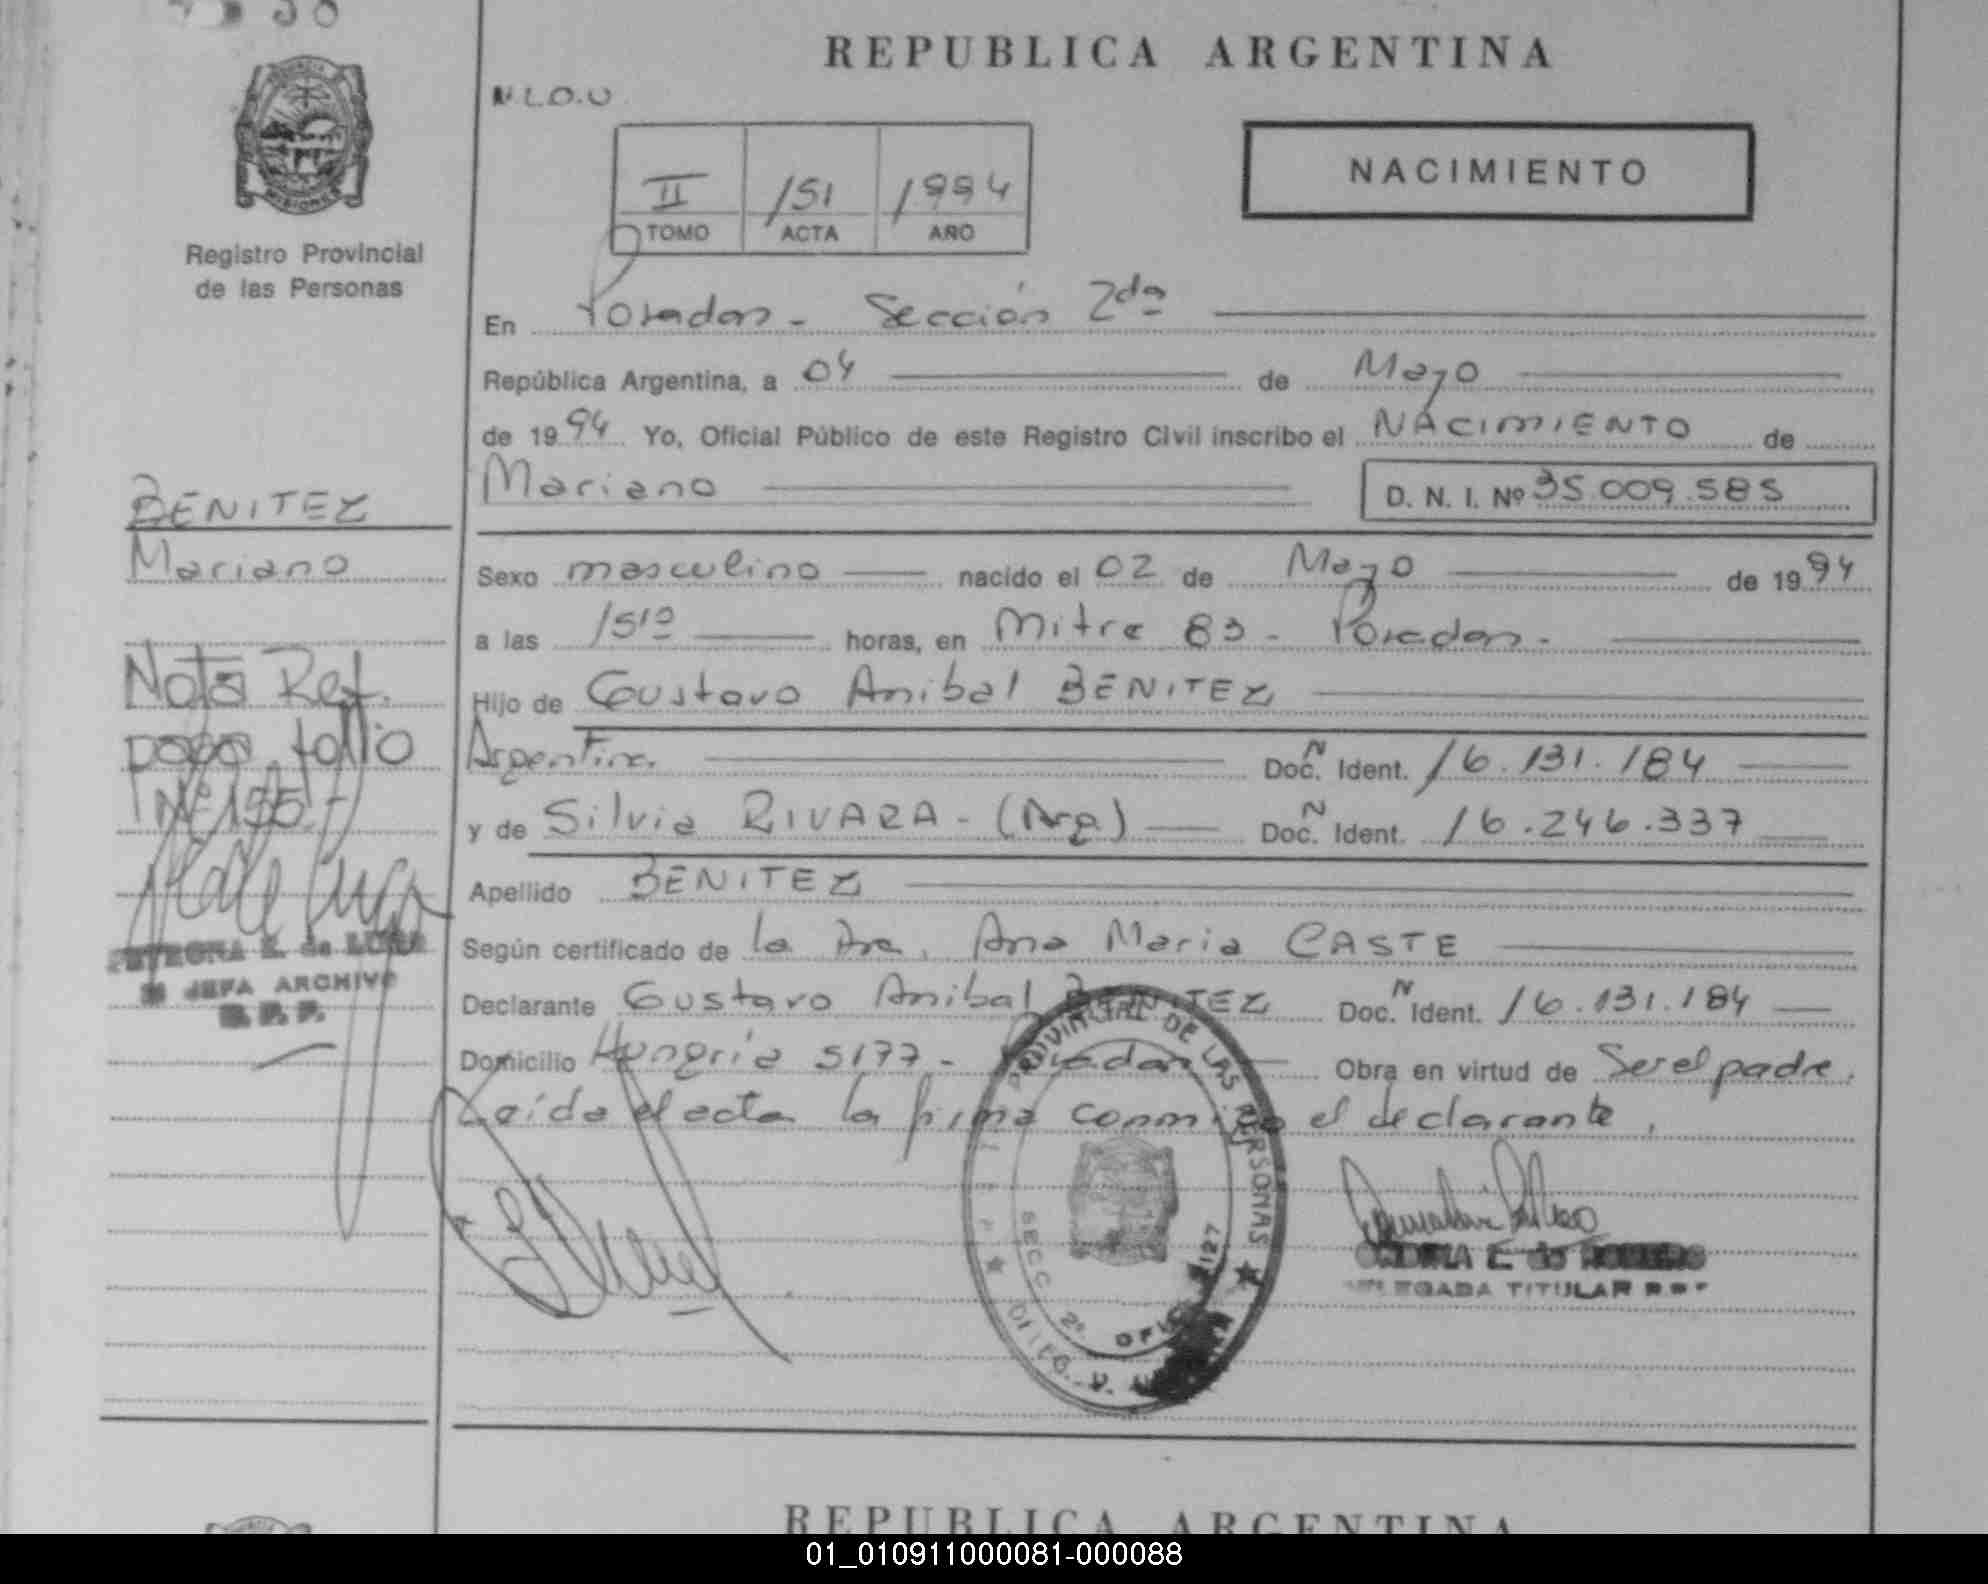 REPUBLICA ARGENTINA
N.L.O.U
NACIMIENTO
II 151 1994
TOMO ACTA AÑO
Registro Provincial
de las Personas
En Posadas - Sección 2da
República Argentina, a 04 de Mayo
de 1994 Yo, Oficial Público de este Registro Civil inscribo el NACIMIENTO de
Mariano D. N. I. Nº 35.009.585
BENITEZ
Mariano
Sexo masculino nacido el 02 de Mayo de 1994
a las 15 10 horas, en Mitre 83 - Posadas -
Hijo de Gustavo Anibal BENITEZ
Argentino. Doc. N Ident. 16.131.184
y de Silvia RIVARA - (Arg) Doc. N Ident. 16.246.337
Apellido BENITEZ
Según certificado de la Dra. Ana Maria CASTE
Declarante Gustavo Anibal BENITEZ Doc. N Ident. 16.131.184
Domicilio Hungria 5177 - Posadas Obra en virtud de Ser el padre.
Leída el acta la firma conmigo el declarante.
Nota Ref.
folio
Nº 155
E. de
JEFA ARCHIVO
R. P. P.
PROVINCIAL DE LAS PERSONAS
SECC 2ª
E. de ROMERO
DELEGADA TITULAR R.P.P
REPUBLICA ARGENTINA
01_010911000081-000088